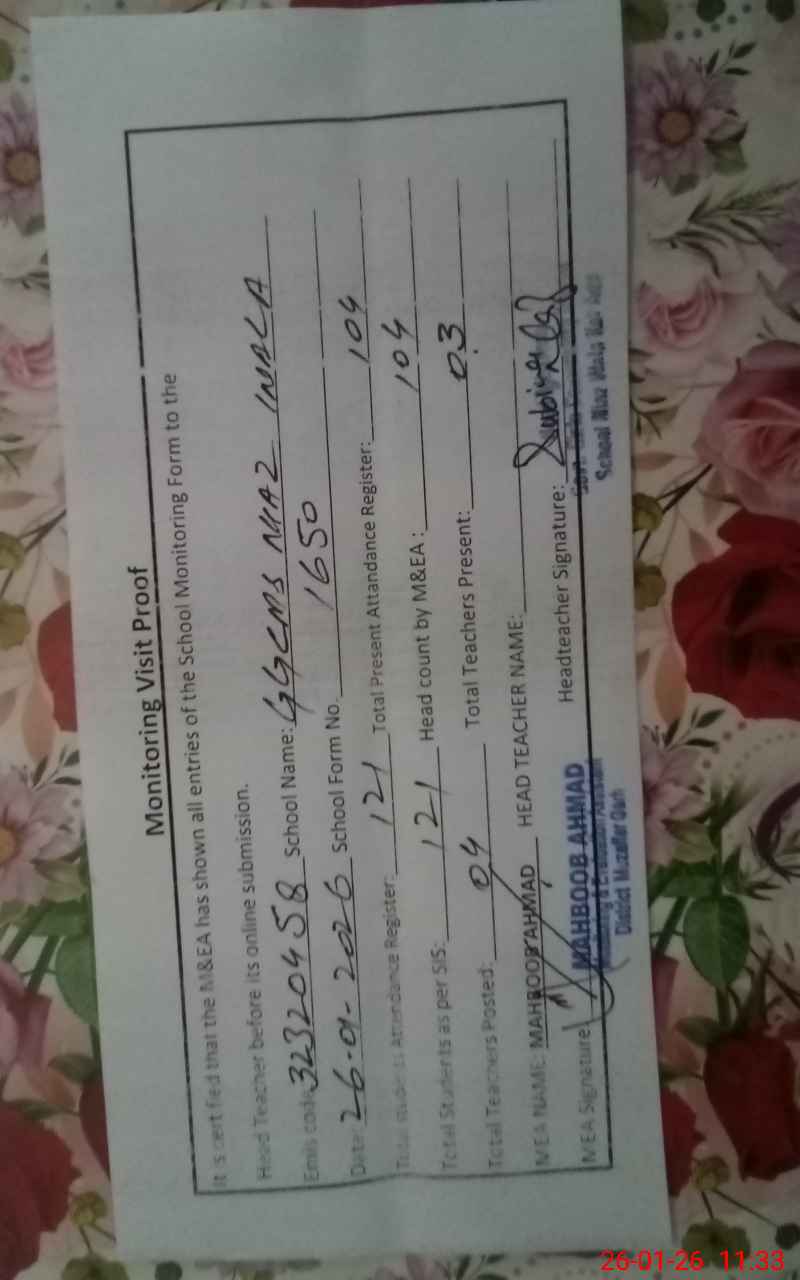 Monitoring Visit Proof
It is certified that the M&EA has shown all entries of the School Monitoring Form to the
Head Teacher before its online submission.
Emis code 32320458 School Name: GGCMS NIAZ WALA
Date: 26-01-2026 School Form No. 1650
Total Students Attendance Register: 121 Total Present Attandance Register: 104
Total Students as per SIS: 121 Head count by M&EA : 104
Total Teachers Posted: 04 Total Teachers Present: 03
MEA NAME: MAHBOOB AHMAD HEAD TEACHER NAME:
MEA Signature Headteacher Signature:
MAHBOOB AHMAD
Monitoring & Evaluation Assistant
District Muzaffar Garh
Govt.
School Niaz Wala
26-01-26 11:33